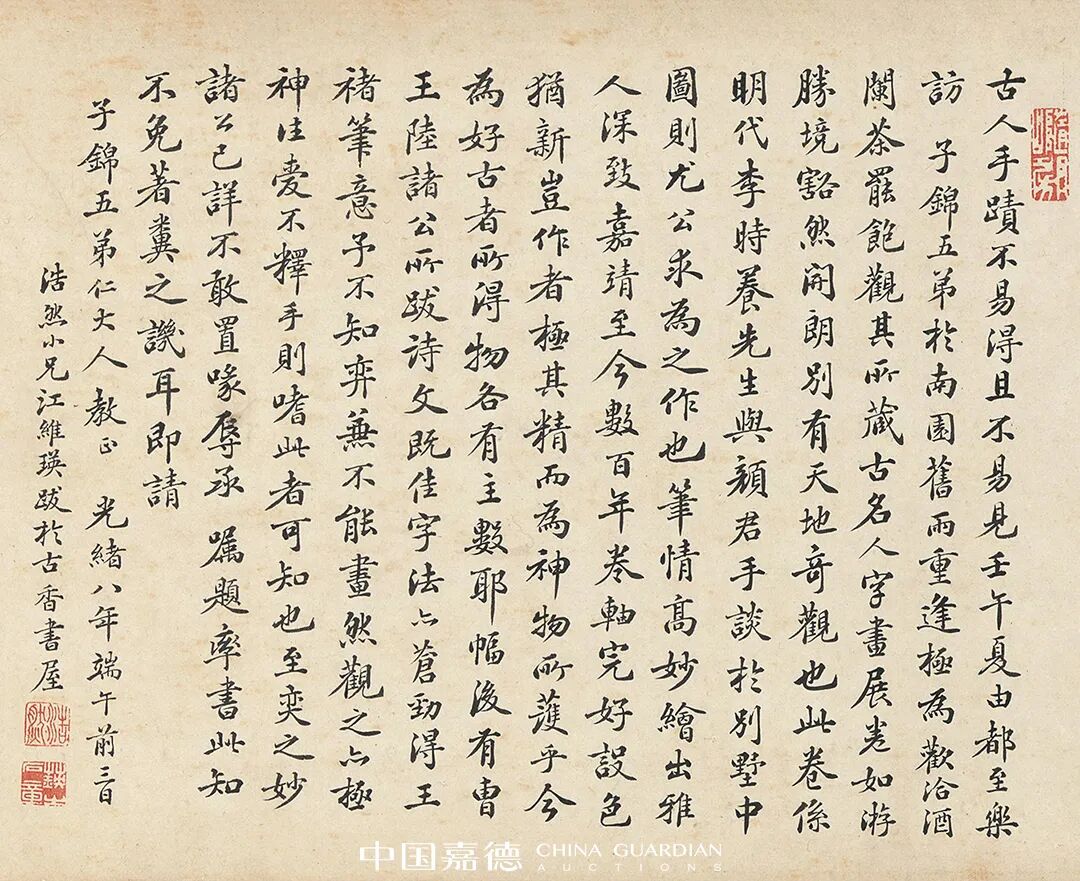 古人手蹟不易得且不易見壬午夏由都至樂
訪 子錦五弟於南園舊雨重逢極為歡洽酒
闌茶罷飽觀其所藏古名人字畫展卷如游
勝境豁然開朗別有天地奇觀也此卷係
明代李時養先生與顏君手談於別墅中
圖則尤公求為之作也筆情高妙繪出雅
人深致嘉靖至今數百年卷軸完好設色
猶新豈作者極其精而為神物所護乎今
為好古者所得物各有主數耶幅後有曹
王陸諸公所跋詩文既佳字法亦蒼勁得王
褚筆意予不知弈兼不能畫然觀之亦極
神往愛不釋手則嗜此者可知也至奕之妙
諸公已詳不敢置喙辱承 囑題率書此知
不免著糞之譏耳即請
子錦五弟仁大人教正 光緒八年端午前三日
浩然小兄江維瑛跋於古香書屋
浩然
中国嘉德 CHINA GUARDIAN
AUCTIONS